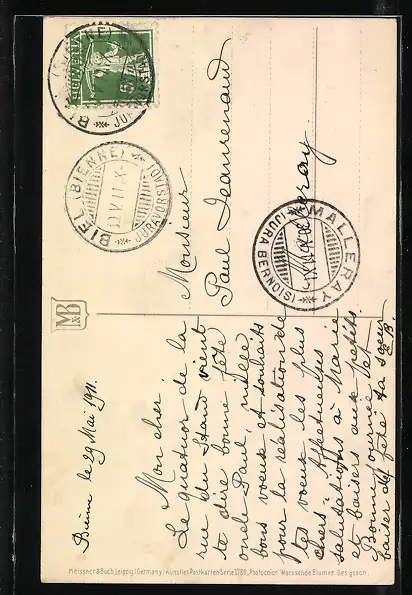 HELVETIA
5
BIEL (BIENNE)
JURAVORST.
BIEL (BIENNE)
JURAVORST.
Monsieur
Paul Jeanrenaud
Malleray.
MALLERAY
(JURA BERNOIS)
M&B
Bienne le 29 Mai 1911.
Mon cher.
Le quatuor de la
rue du Stand vient
te dire bonne fête
oncle Paul, mille
bons voeux et souhaits
pour la réalisation de
tes voeux les plus
chers. Affectueuses
salutations à Marie
et baisers aux petits
Bonne journée et
baiser de fête ta soeur
Meissner & Buch, Leipzig, (Germany.) Künstler-Postkarten Serie 1780. „Photocolor" Wachsende Blumen. Ges. gesch.